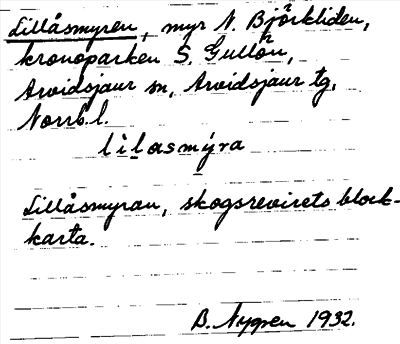 Lillåsmyren, myr N. Björkliden,
kronoparken S. Gullön,
Arvidsjaur sn, Arvidsjaur tg,
Norrb. l.
lìlasmýra
Lillåsmyran, skogsrevirets block-
karta.
B. Nygren 1932.